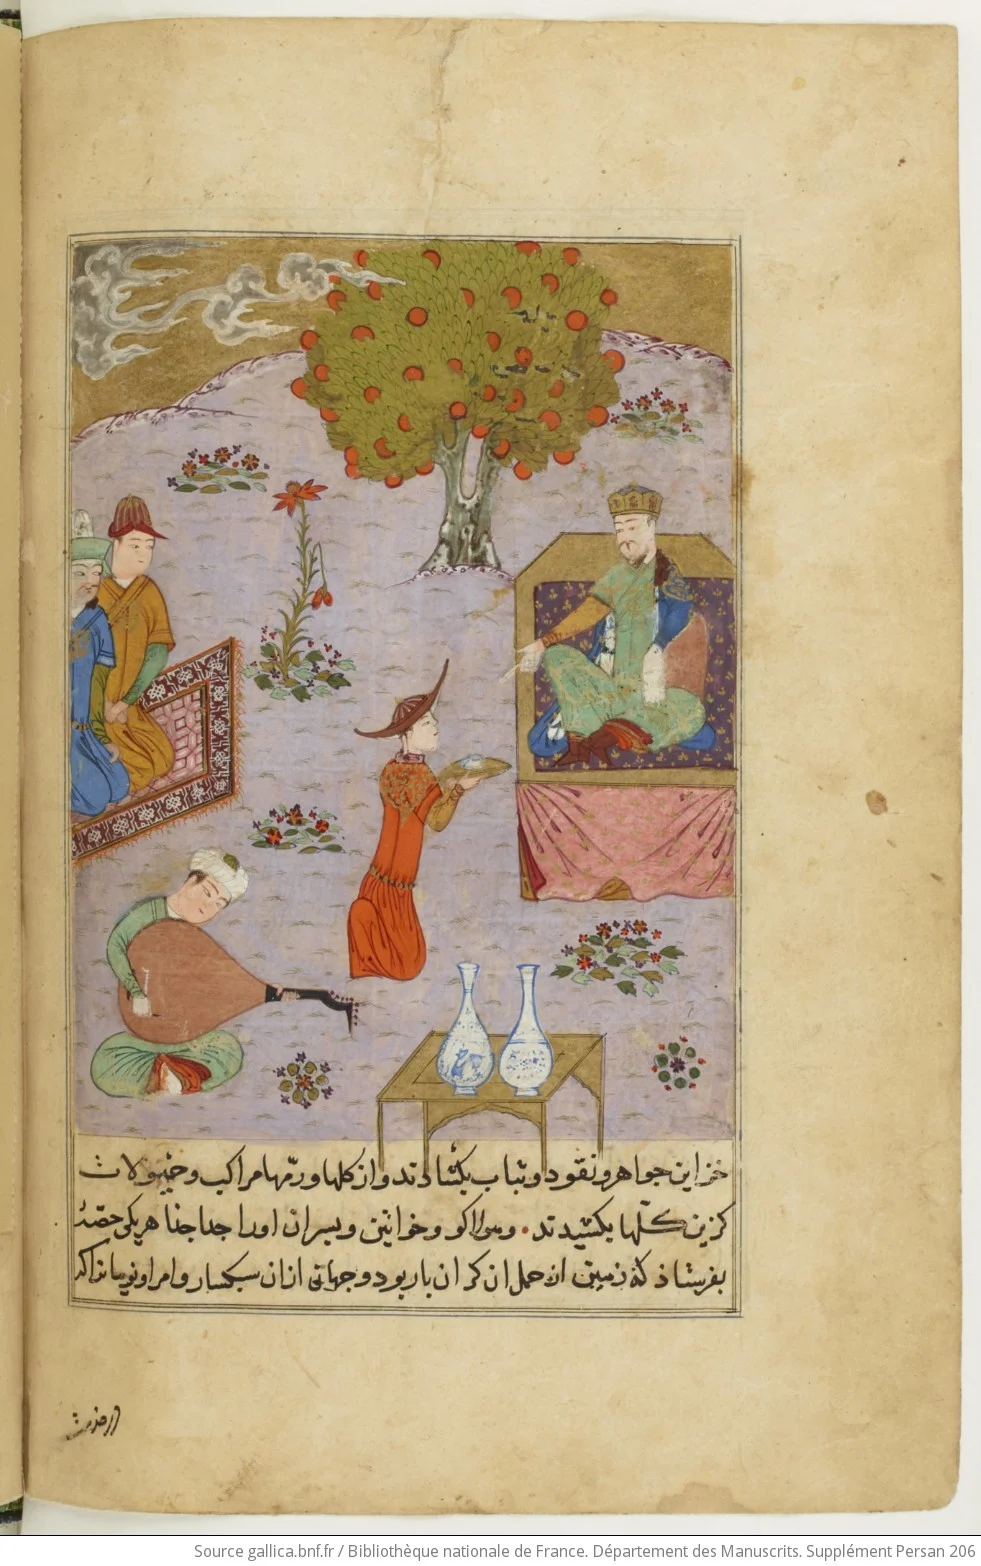 خزاین جواهر و نقود و ثیاب بکشادند و از کلها و رمّها مراکب و حمولات
کزین کلّها بکشیدتد. و هولاکو و خواتین و پسران او را جدا جدا هر یکی حصّهٔ
بفرستاذ که زمین از حمل ان کران بار بود و جهانی از ان سبکسار و امرا و نوینانرا که
در خدمت
Source gallica.bnf.fr / Bibliothèque nationale de France. Département des Manuscrits. Supplément Persan 206